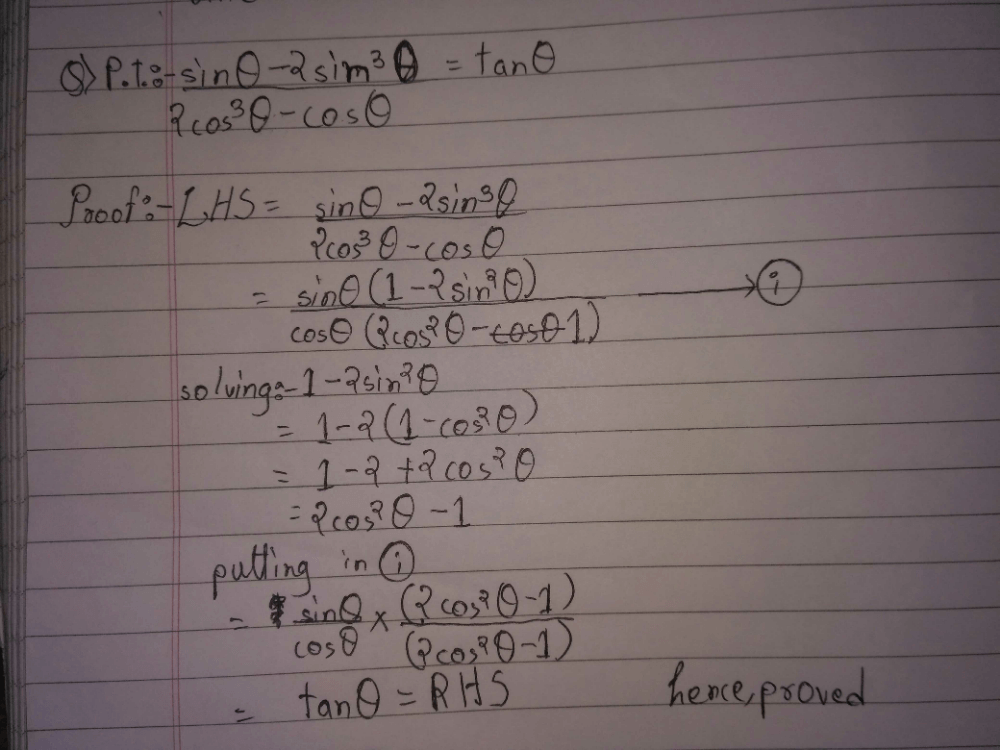 Q) P.T.:- sinθ - 2sin³θ = tanθ
2cos³θ - cosθ
Proof:- LHS = sinθ - 2sin³θ
2cos³θ - cosθ
= sinθ (1 - 2sin²θ) → (i)
cosθ (2cos²θ - cosθ 1)
solving:- 1 - 2sin²θ
= 1 - 2(1 - cos²θ)
= 1 - 2 + 2cos²θ
= 2cos²θ - 1
putting in (i)
= sinθ × (2cos²θ - 1)
cosθ (2cos²θ - 1)
= tanθ = RHS hence, proved